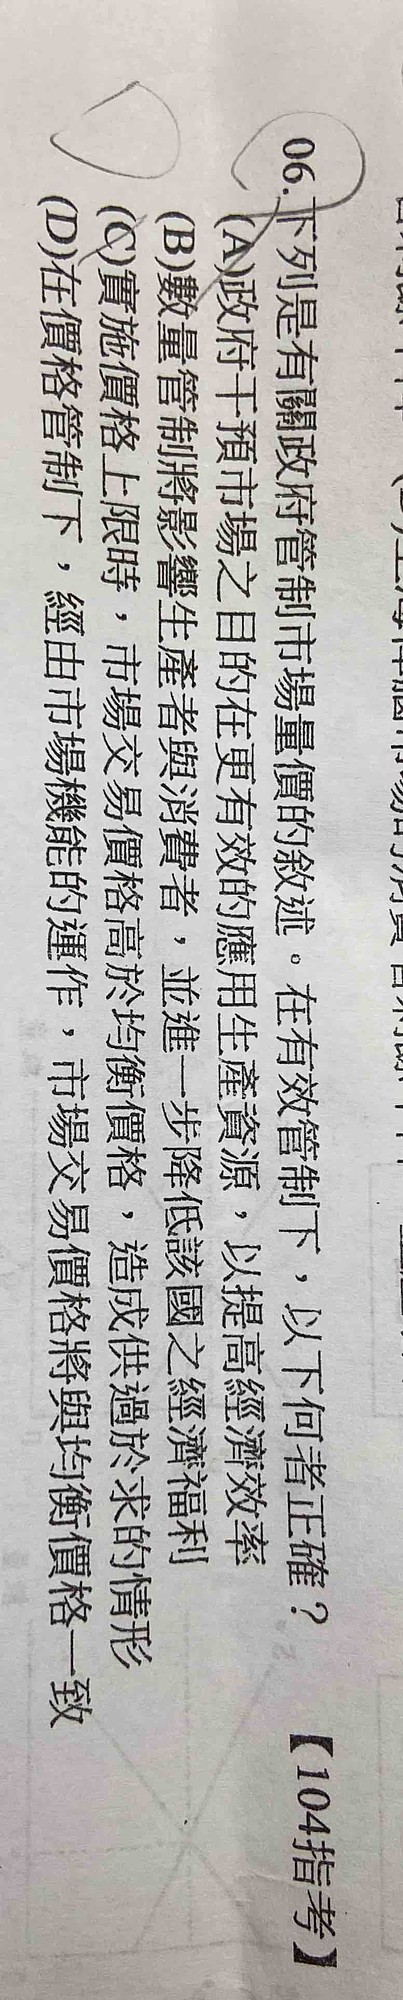 06.下列是有關政府管制市場量價的敘述。在有效管制下，以下何者正確？ 【104指考】
(A)政府干預市場之目的在更有效的應用生產資源，以提高經濟效率
(B)數量管制將影響生產者與消費者，並進一步降低該國之經濟福利
(C)實施價格上限時，市場交易價格高於均衡價格，造成供過於求的情形
(D)在價格管制下，經由市場機能的運作，市場交易價格將與均衡價格一致